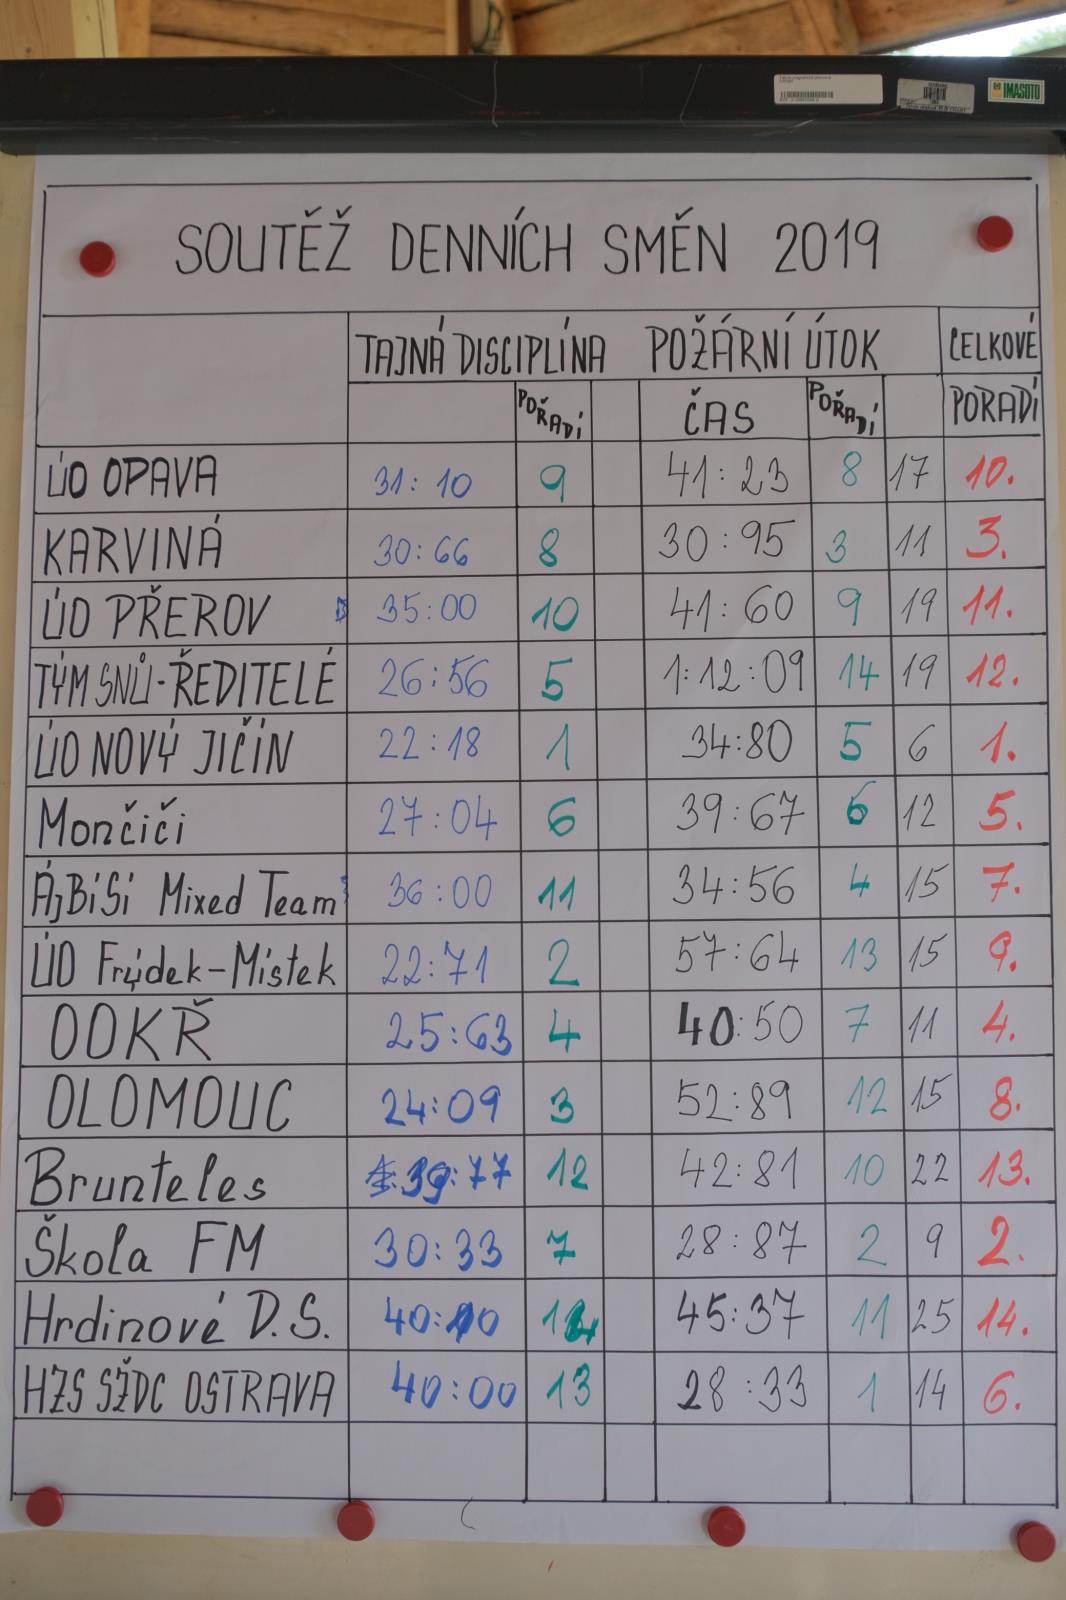 IMASOTO
SOUTĚŽ DENNÍCH SMĚN 2019
TAJNÁ DISCIPLÍNA POŽÁRNÍ ÚTOK CELKOVÉ
POŘADÍ ČAS POŘADÍ PORADÍ
ÚO OPAVA 31:10 9 41:23 8 17 10.
KARVINÁ 30:66 8 30:95 3 11 3.
ÚO PŘEROV 35:00 10 41:60 9 19 11.
TÝM SNŮ-ŘEDITELÉ 26:56 5 1:12:09 14 19 12.
ÚO NOVÝ JIČÍN 22:18 1 34:80 5 6 1.
Mončiči 27:04 6 39:67 6 12 5.
ÁjBiSi Mixed Team 36:00 11 34:56 4 15 7.
ÚO Frýdek-Místek 22:71 2 57:64 13 15 9.
OOKŘ 25:63 4 40:50 7 11 4.
OLOMOUC 24:09 3 52:89 12 15 8.
Brunteles 39:77 12 42:81 10 22 13.
Škola FM 30:33 7 28:87 2 9 2.
Hrdinové D.S. 45:37 11 25 14.
HZS SŽDC OSTRAVA 40:00 13 28:33 1 14 6.